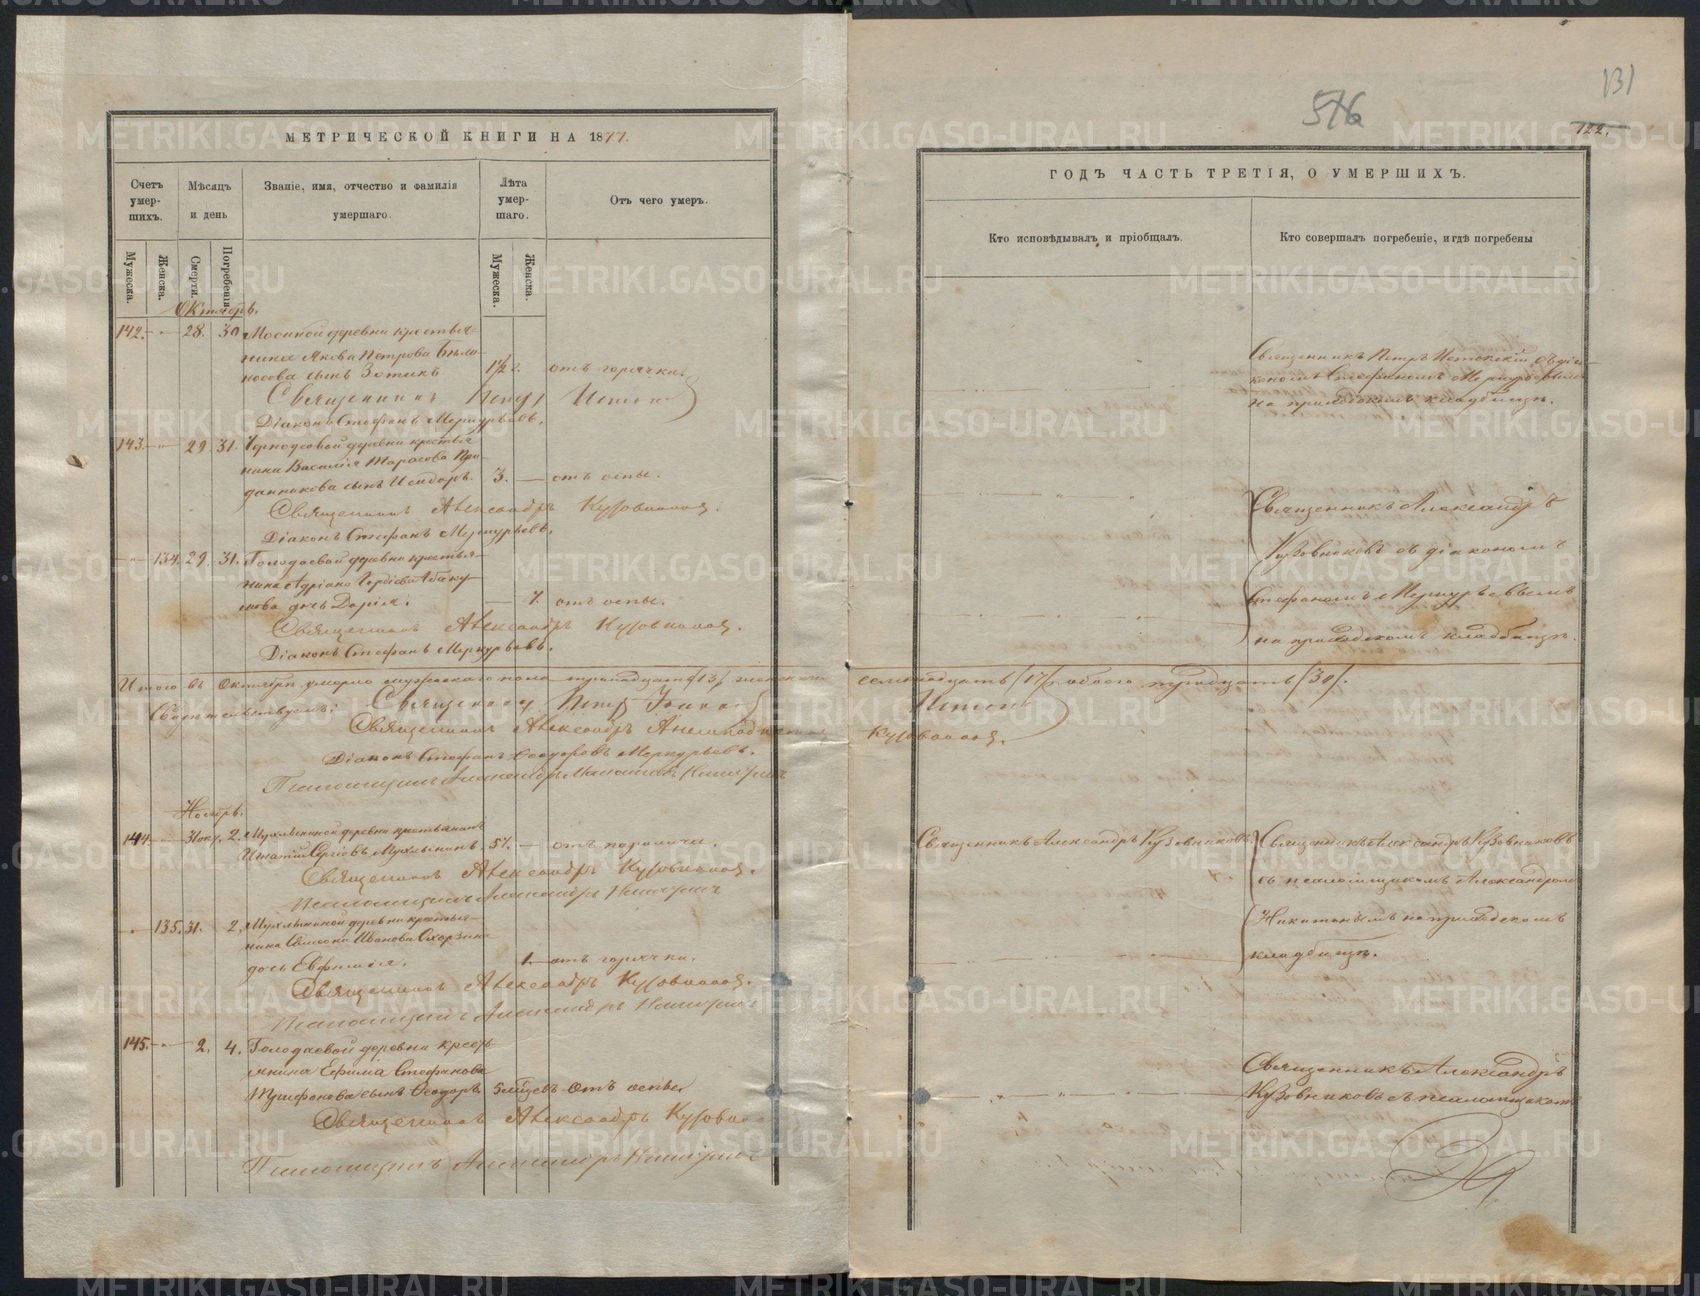 МЕТРИЧЕСКОЙ КНИГИ НА 1877.
Счетъ умер-шихъ.
Мѣсяцъ и день
Званіе, имя, отчество и фамилія умершаго.
Лѣта умер-шаго.
Отъ чего умеръ.
Мужеска.
Женска.
Смерти.
Погребенія.
Мужеска.
Женска.
Октябрь.
142. - " - 28. 30. деревни крестья-
нина Якова Петрова Бѣло-
носова сынъ Зотикъ 1½ г. отъ горячки.
Священникъ Петръ
Діаконъ Стефанъ Меркурьевъ.
143. - " - 29. 31. деревни крестья-
нина Василія Тарасова
сынъ Исидоръ. 3. — отъ оспы.
Священникъ Александръ Кузовниковъ.
Діаконъ Стефанъ Меркурьевъ.
- " - 134. 29. 31. Голодаевой деревни крестья-
нина Адріана
дочь Дарія. — 7. отъ оспы.
Священникъ Александръ Кузовниковъ.
Діаконъ Стефанъ Меркурьевъ.
Итого въ Октябрѣ умерло мужескаго пола тринадцать /13/ женскаго
Священникъ Петръ
Священникъ Александръ
Діаконъ Стефанъ Ѳеодоровъ Меркурьевъ.
Псаломщикъ Александръ
Ноябрь.
144. - " - 31 окт. 2. Мухлыниной деревни крестьянинъ
Игнатій Сергіевъ Мухлынинъ. 57. — отъ паралича.
Священникъ Александръ Кузовниковъ.
Псаломщикъ Александръ Никитинъ
" 135. 31. 2. Мухлыниной деревни крестья-
нина Симеона Иванова
дочь Евфимія. 1. — отъ горячки.
Священникъ Александръ Кузовниковъ.
Псаломщикъ Александръ Никитинъ
145. - " - 2. 4. Голодаевой деревни кресть-
янина Ефима Стефанова
Трифонова сынъ Ѳеодоръ 5 мѣсяц. Отъ оспы.
Священникъ Александръ
Псаломщикъ Александръ Никитинъ
131
576
122.
ГОДЪ ЧАСТЬ ТРЕТІЯ, О УМЕРШИХЪ.
Кто исповѣдывалъ и пріобщалъ.
Кто совершалъ погребеніе, и гдѣ погребены
Священникъ Петръ съ діа-
кономъ Стефаномъ Меркурьевымъ
на приходскомъ кладбищѣ.
Священникъ Александръ
Кузовниковъ съ діакономъ
Стефаномъ Меркурьевымъ
на приходскомъ кладбищѣ.
семнадцать /17/ обоего тридцать /30/.
Кузовниковъ.
Священникъ Александръ Кузовниковъ
Священникъ Александръ Кузовниковъ
съ псаломщикомъ Александромъ
Никитинымъ на приходскомъ
кладбищѣ.
Священникъ Александръ
Кузовниковъ съ псаломщикомъ
METRIKI.GASO-URAL.RU